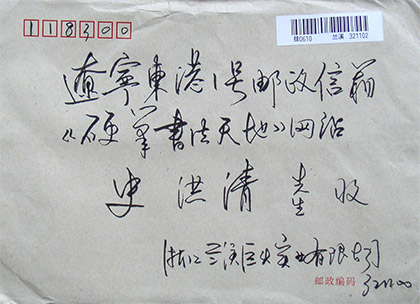 118300
挂0610 兰溪 321102
辽宁东港1号邮政信箱
《硬筆書法天地》网站
史洪清 先生 收
浙江兰溪巨大实业有限公司
邮政编码 321100